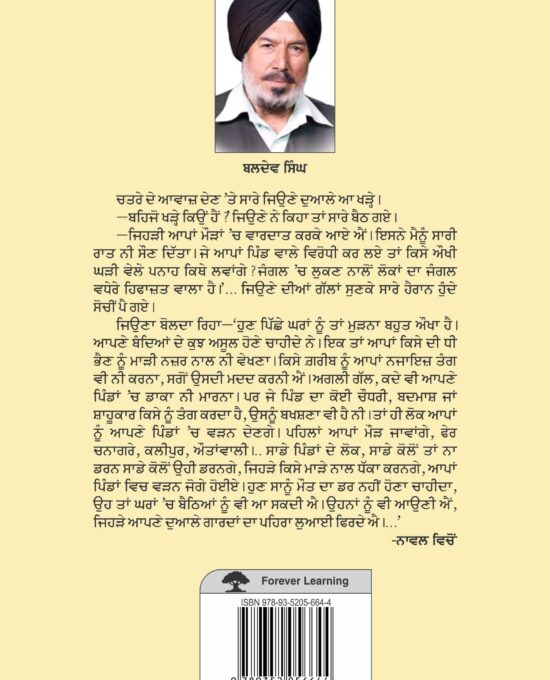 ਬਲਦੇਵ ਸਿੰਘ
ਚਤਰੇ ਦੇ ਆਵਾਜ਼ ਦੇਣ ’ਤੇ ਸਾਰੇ ਜਿਉਣੇ ਦੁਆਲੇ ਆ ਖੜ੍ਹੇ।
—ਬਹਿਜੋ ਖੜ੍ਹੇ ਕਿਉਂ ਹੈਂ ? ਜਿਉਣੇ ਨੇ ਕਿਹਾ ਤਾਂ ਸਾਰੇ ਬੈਠ ਗਏ।
—ਜਿਹੜੀ ਆਪਾਂ ਮੌੜਾਂ ’ਚ ਵਾਰਦਾਤ ਕਰਕੇ ਆਏ ਐਂ। ਇਸਨੇ ਮੈਨੂੰ ਸਾਰੀ
ਰਾਤ ਨੀ ਸੌਣ ਦਿੱਤਾ। ਜੇ ਆਪਾਂ ਪਿੰਡ ਵਾਲੇ ਵਿਰੋਧੀ ਕਰ ਲਏ ਤਾਂ ਕਿਸੇ ਔਖੀ
ਘੜੀ ਵੇਲੇ ਪਨਾਹ ਕਿਥੇ ਲਵਾਂਗੇ ? ਜੰਗਲ ’ਚ ਲੁਕਣ ਨਾਲੋਂ ਲੋਕਾਂ ਦਾ ਜੰਗਲ
ਵਧੇਰੇ ਹਿਫਾਜ਼ਤ ਵਾਲਾ ਹੈ।’... ਜਿਉਣੇ ਦੀਆਂ ਗੱਲਾਂ ਸੁਣਕੇ ਸਾਰੇ ਹੈਰਾਨ ਹੁੰਦੇ
ਸੋਚੀਂ ਪੈ ਗਏ।
ਜਿਉਣਾ ਬੋਲਦਾ ਰਿਹਾ—‘ਹੁਣ ਪਿੱਛੇ ਘਰਾਂ ਨੂੰ ਤਾਂ ਮੁੜਨਾ ਬਹੁਤ ਔਖਾ ਹੈ।
ਆਪਣੇ ਬੰਦਿਆਂ ਦੇ ਕੁਝ ਅਸੂਲ ਹੋਣੇ ਚਾਹੀਦੇ ਨੇ। ਇਕ ਤਾਂ ਆਪਾਂ ਕਿਸੇ ਦੀ ਧੀ
ਭੈਣ ਨੂੰ ਮਾੜੀ ਨਜ਼ਰ ਨਾਲ ਨੀ ਵੇਖਣਾ। ਕਿਸੇ ਗ਼ਰੀਬ ਨੂੰ ਆਪਾਂ ਨਜਾਇਜ਼ ਤੰਗ
ਵੀ ਨੀ ਕਰਨਾ, ਸਗੋਂ ਉਸਦੀ ਮਦਦ ਕਰਨੀ ਐਂ। ਅਗਲੀ ਗੱਲ, ਕਦੇ ਵੀ ਆਪਣੇ
ਪਿੰਡਾਂ ’ਚ ਡਾਕਾ ਨੀ ਮਾਰਨਾ। ਪਰ ਜੇ ਪਿੰਡ ਦਾ ਕੋਈ ਚੌਧਰੀ, ਬਦਮਾਸ਼ ਜਾਂ
ਸ਼ਾਹੂਕਾਰ ਕਿਸੇ ਨੂੰ ਤੰਗ ਕਰਦਾ ਹੈ, ਉਸਨੂੰ ਬਖਸ਼ਣਾ ਵੀ ਹੈ ਨੀ। ਤਾਂ ਹੀ ਲੋਕ ਆਪਾਂ
ਨੂੰ ਆਪਣੇ ਪਿੰਡਾਂ ’ਚ ਵੜਨ ਦੇਣਗੇ। ਪਹਿਲਾਂ ਆਪਾਂ ਮੌੜ ਜਾਵਾਂਗੇ, ਫੇਰ
ਚਨਾਗਰੇ, ਕਲੀਪੁਰ, ਔਤਾਂਵਾਲੀ।.. ਸਾਡੇ ਪਿੰਡਾਂ ਦੇ ਲੋਕ, ਸਾਡੇ ਕੋਲੋਂ ਤਾਂ ਨਾ
ਡਰਨ ਸਾਡੇ ਕੋਲੋਂ ਉਹੀ ਡਰਨਗੇ, ਜਿਹੜੇ ਕਿਸੇ ਮਾੜੇ ਨਾਲ ਧੱਕਾ ਕਰਨਗੇ, ਆਪਾਂ
ਪਿੰਡਾਂ ਵਿਚ ਵੜਨ ਜੋਗੇ ਹੋਈਏ। ਹੁਣ ਸਾਨੂੰ ਮੌਤ ਦਾ ਡਰ ਨਹੀਂ ਹੋਣਾ ਚਾਹੀਦਾ,
ਉਹ ਤਾਂ ਘਰਾਂ ’ਚ ਬੈਠਿਆਂ ਨੂੰ ਵੀ ਆ ਸਕਦੀ ਐ। ਉਹਨਾਂ ਨੂੰ ਵੀ ਆਉਣੀ ਐਂ,
ਜਿਹੜੇ ਆਪਣੇ ਦੁਆਲੇ ਗਾਰਦਾਂ ਦਾ ਪਹਿਰਾ ਲੁਆਈ ਫਿਰਦੇ ਐ।...’
-ਨਾਵਲ ਵਿਚੋਂ
Forever Learning
ISBN 978-93-5205-664-4